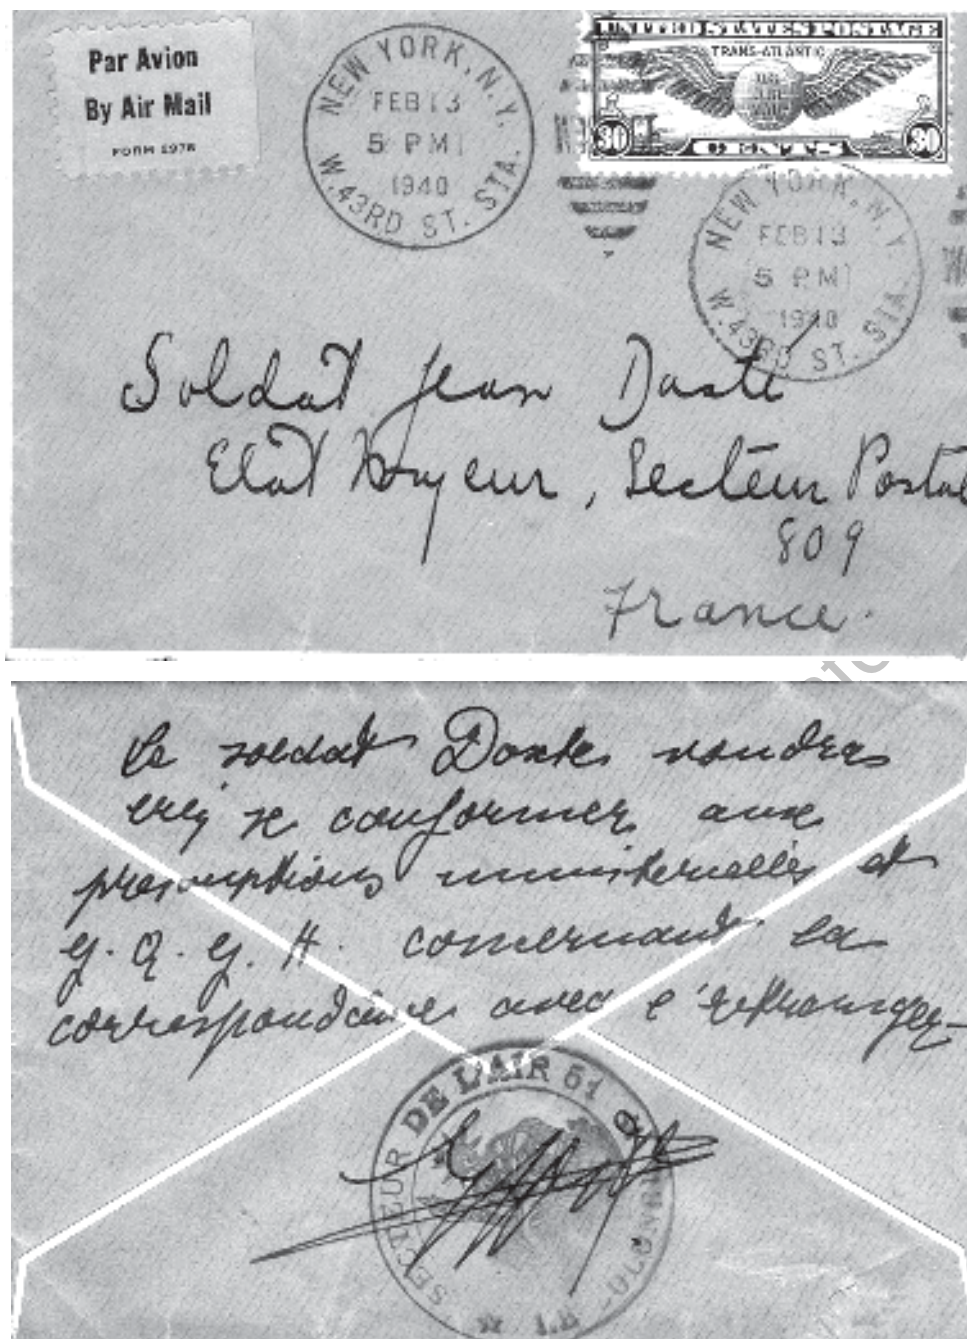 Par Avion
By Air Mail
FORM 2978
NEW YORK, N.Y.
FEB 13
5 PM
1940
W. 43RD ST. STA.
UNITED STATES POSTAGE
TRANS-ATLANTIC
30 30
CENTS
NEW YORK, N.Y.
FEB 13
5 PM
1940
W. 43RD ST. STA.
Soldat Jean Dasté
Etat Mayeur, Secteur Postal
809
France.
Le soldat Daste voudra
se conformer aux
prescriptions ministerielles et
G. Q. G. A. concernant la
correspondance avec l'etranger
SECTEUR DE L'AIR 51